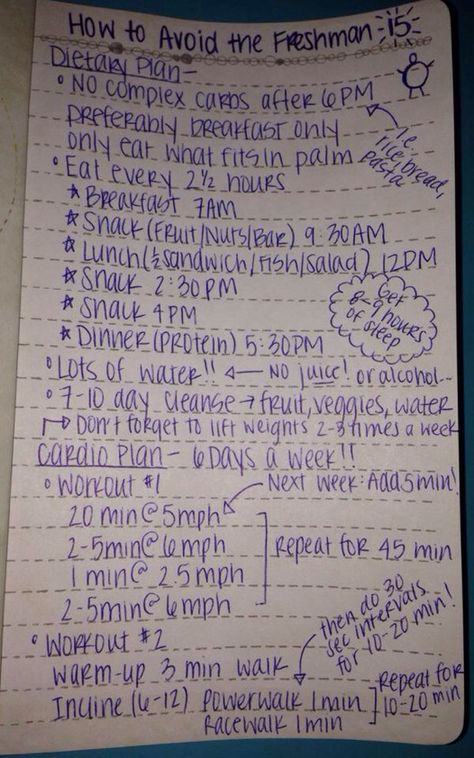 How to Avoid the Freshman 15
Dietary Plan-
• NO complex carbs after 6PM
preferably breakfast only
only eat what fits in palm
i.e. rice, bread, pasta
• Eat every 2½ hours
* Breakfast 7AM
* Snack (Fruit/Nuts/Bar) 9:30AM
* Lunch (½ sandwich/Fish/Salad) 12PM
* Snack 2:30PM
* Snack 4PM
* Dinner (Protein) 5:30PM
Get 8-9 hours of sleep
• Lots of water!! ← NO juice! or alcohol..
• 7-10 day cleanse → fruit, veggies, water
↦ Don't forget to lift weights 2-3 times a week
Cardio Plan- 6 Days a week!!
• Workout #1
Next week: Add 5 min!
20 min @ 5mph
2-5min @ 6mph
1 min @ 2.5mph
2-5min @ 6mph
Repeat for 45 min
• Workout #2
then do 30 sec intervals for 10-20 min!
Warm-up 3 min walk
Incline (6-12) Powerwalk 1min
Racewalk 1min
Repeat for 10-20 min